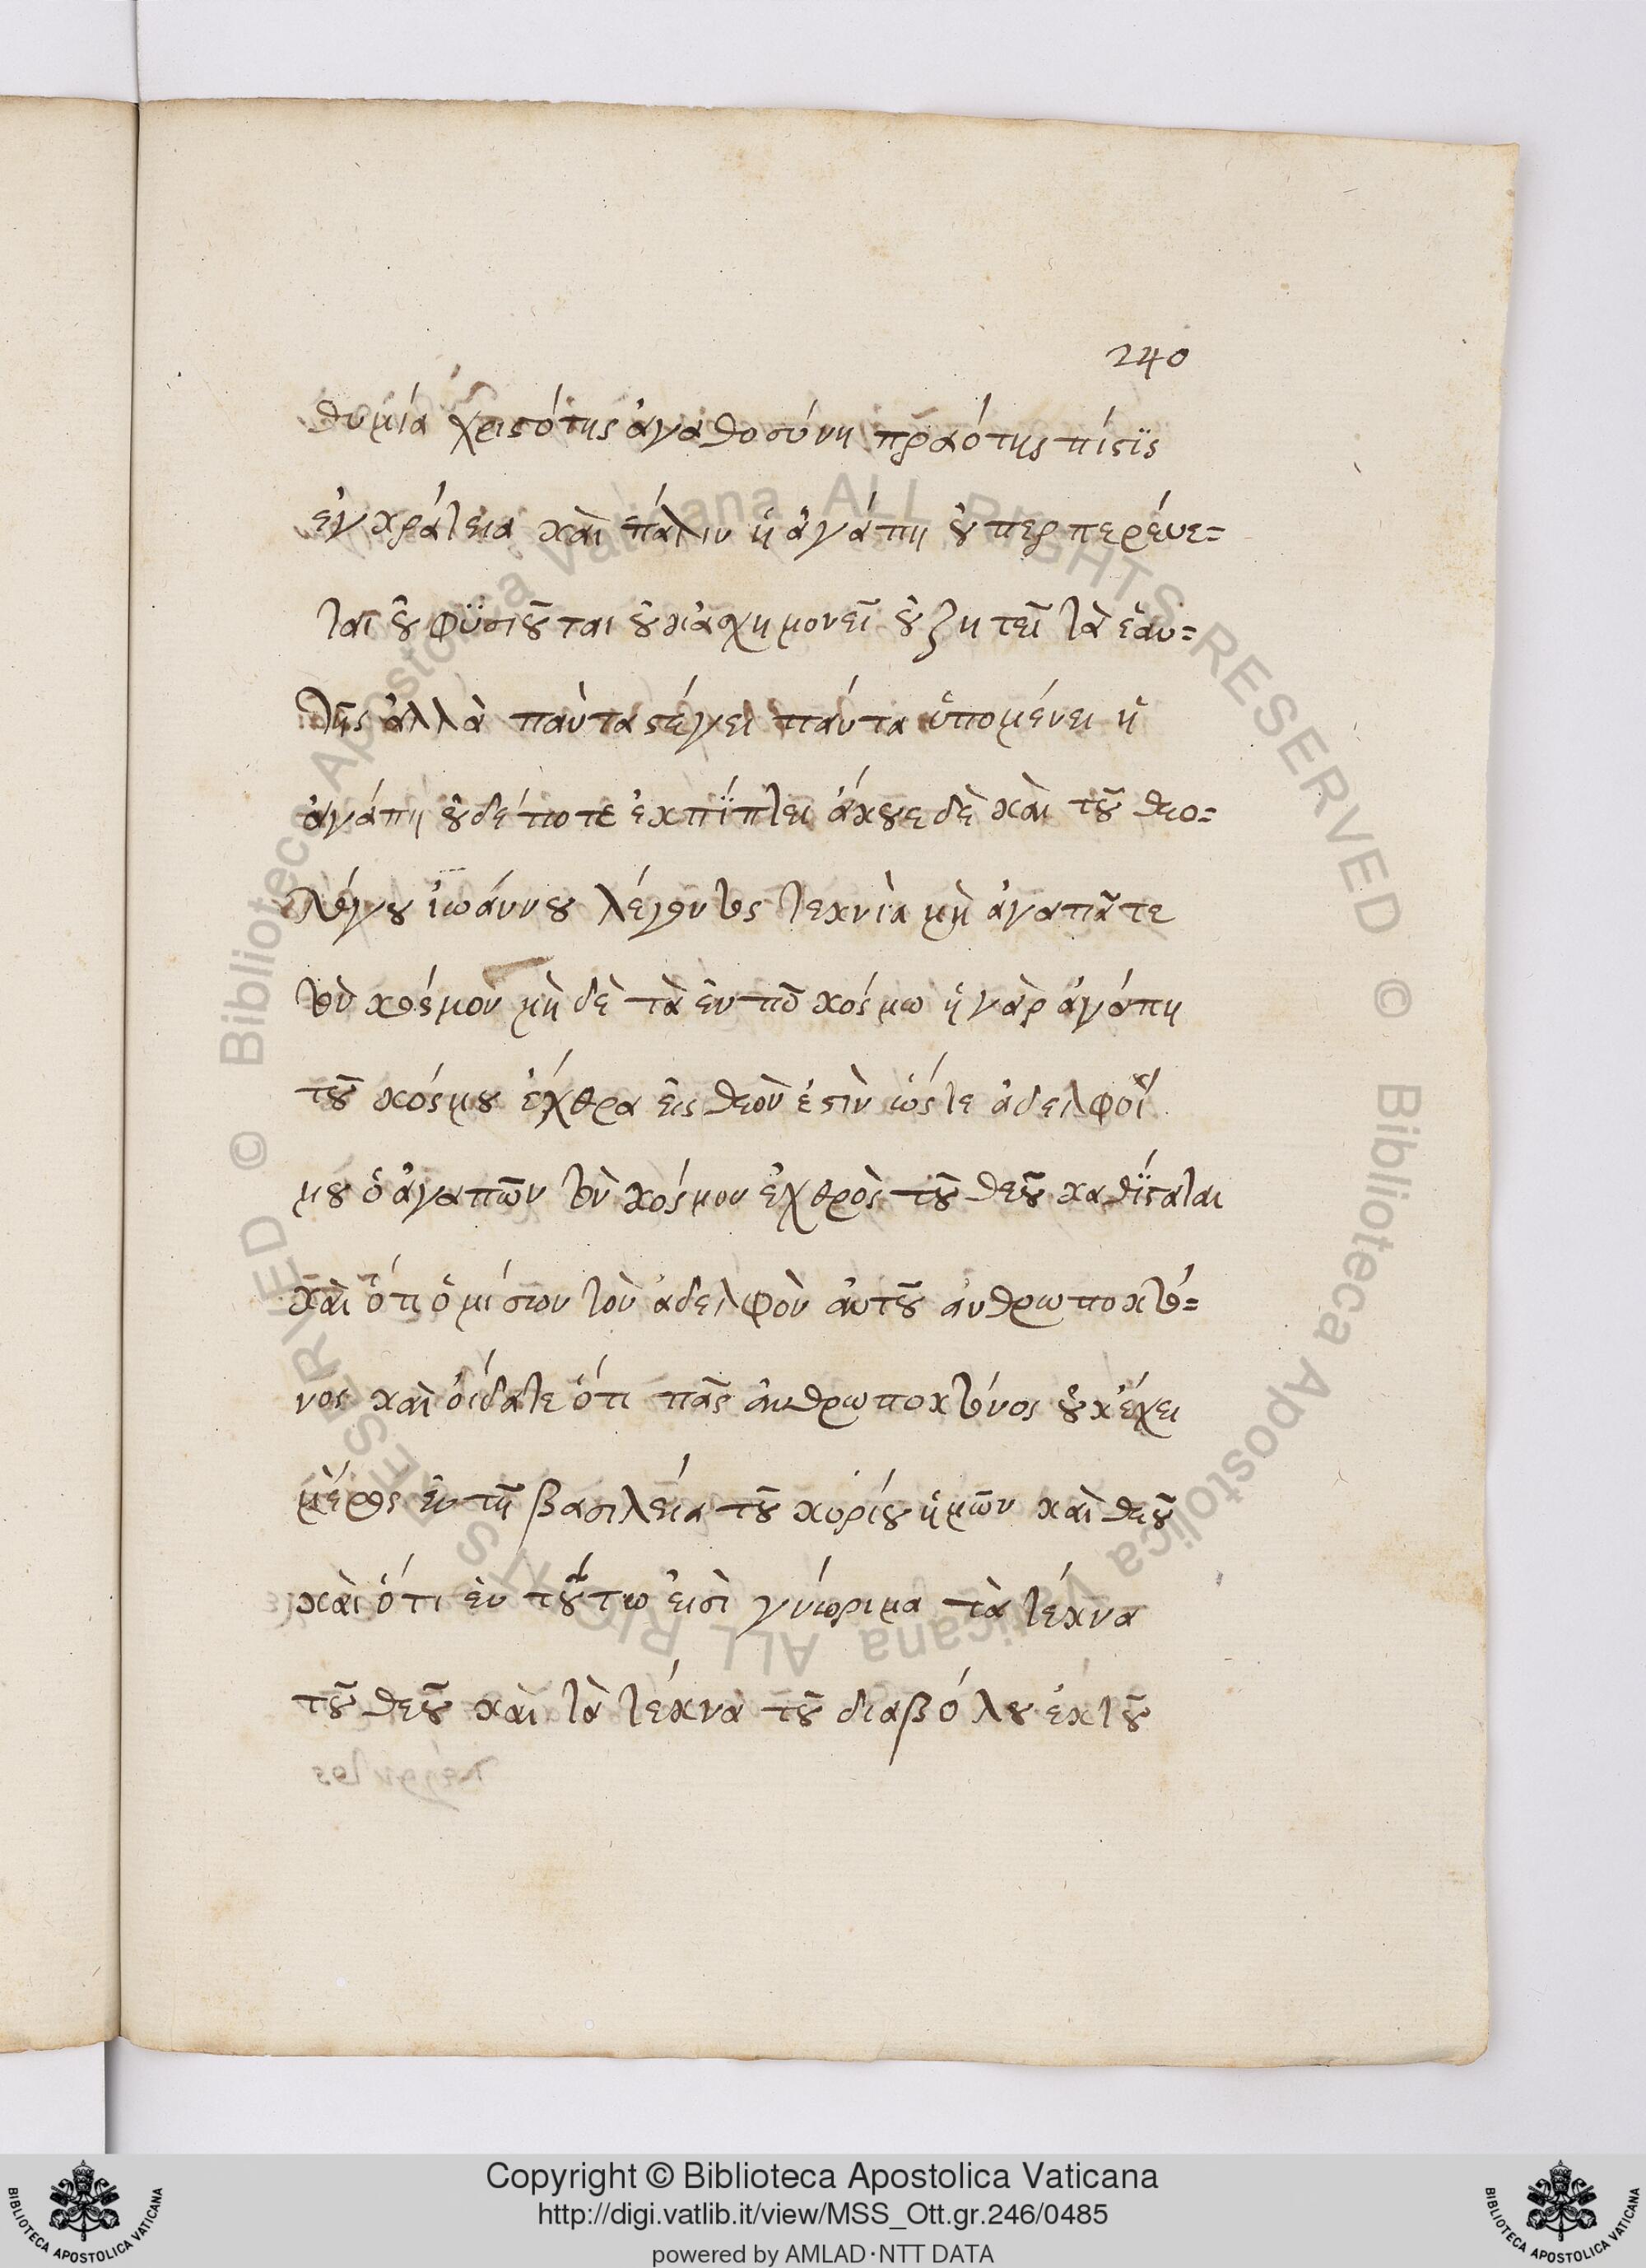 240
θυμία χριστότης ἀγαθοσύνη πραότης πίστϊς
ἐγκράτεια καὶ πάλιν ἡ ἀγάπη οὐ περπερέυε=
ται οὐ φϋσιοῦται οὐκ ἀσχημονεῖ οὐ ζητεῖ τὰ ἑαυ=
τῆς ἀλλὰ πάντα στέγει πάντα ὑπομένει ἡ
ἀγάπη οὐδέποτε ἐκπίπτει ἄκουε δὲ καὶ τοῦ θεο=
λόγου ἰωάννου λέγοντος τεκνία μὴ ἀγαπᾶτε
τὸν κόσμον μὴ δὲ τὰ ἐν τῶ κόσμω ἡ γὰρ ἀγάπη
τοῦ κόσμου ἔχθρα εἰς θεὸν ἐστὶν ὥστε ἀδελφοί
μου ὁ ἀγαπῶν τὸν κόσμον ἐχθρὸς τοῦ θεοῦ καθίσταται
καὶ ὅτι ὁ μισῶν τὸν ἀδελφὸν αὐτοῦ ἀνθρωποκτό=
νος καὶ οἴδατε ὅτι πᾶς ἀνθρωποκτόνος οὐκ ἔχει
μέρος ἐν τῆ βασιλεία τοῦ κυρίου ἡμῶν καὶ θεοῦ
καὶ ὅτι ἐν τούτω εἰσὶ γνώριμα τὰ τέκνα
τοῦ θεοῦ καὶ τὰ τέκνα τοῦ διαβόλου ἐκ τοῦ
Copyright © Biblioteca Apostolica Vaticana
http://digi.vatlib.it/view/MSS_Ott.gr.246/0485
powered by AMLAD·NTT DATA
© Biblioteca Apostolica Vaticana ALL RIGHTS RESERVED
© Biblioteca Apostolica Vaticana ALL RIGHTS RESERVED
BIBLIOTECA APOSTOLICA VATICANA
BIBLIOTECA APOSTOLICA VATICANA